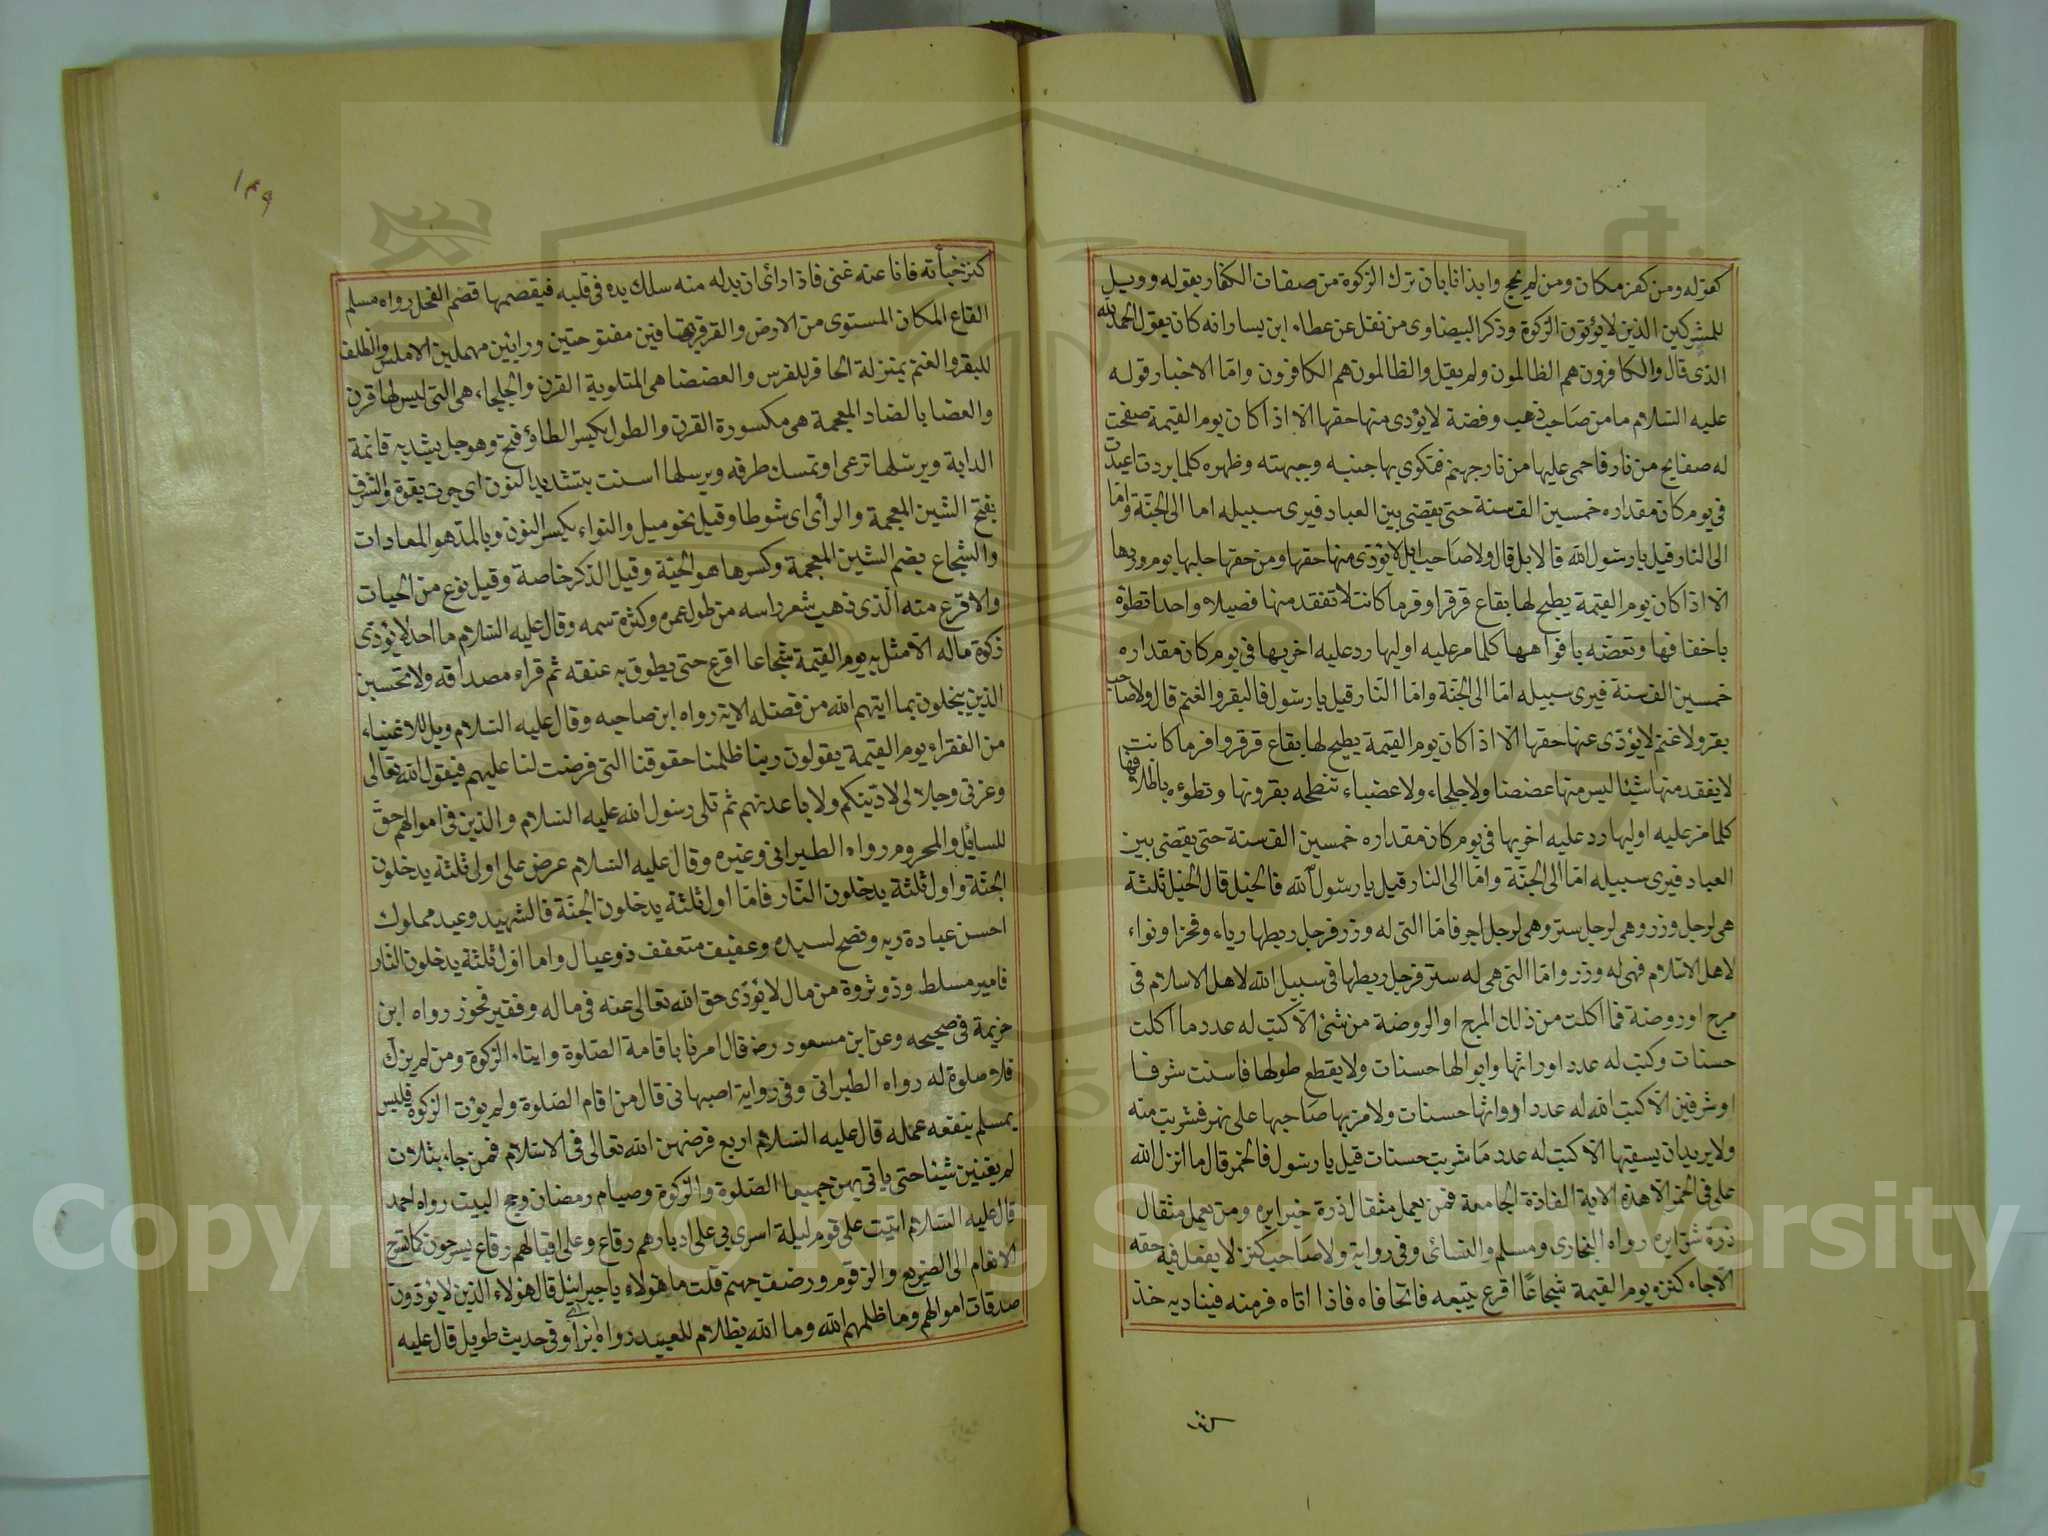 كقوله ومن كفر مكان ومن لم يحج وايذانا بان ترك الزكوة من صفات الكفار بقوله وويل
للمشركين الذين لا يؤتون الزكوة وذكر البيضاوى من نقل عن عطاء ابن يسار انه كان يقول الحمد لله
الذى قال والكافرون هم الظالمون ولم يقل والظالمون هم الكافرون وامّا الاخبار قوله
عليه السّلام ما من صَاحب ذهب وفضة لا يؤدى منها حقها الا اذا كان يوم القيمة صفحت
له صفايح من نار فاحمى عليها من نار جهنم فتكوى بها جنبه وجبهته وظهره كلما بردت اعيدت
فى يوم كان مقداره خمسين الف سنة حتى يقضى بين العباد فيرى سبيله اما الى الجنّة وامّا
الى النار قيل يا رسول الله فالابل قال ولا صَاحب ابل لا يؤدى منها حقها ومن حقها حلبها يوم وردها
الا اذا كان يوم القيمة يطبح لها بقاع قرقر اوفر ما كانت لا تفقد منها فصيلا واحدا تطؤه
باخفافها وتعضه بافواهها كلما مر عليه اوليها رد عليه اخريها فى يوم كان مقداره
خمسين الف سنة فيرى سبيله امّا الى الجنّة وامّا النّار قيل يا رسول فالبقر والغنم قال ولا صاحب
بقر ولا غنم لا يؤدى عنها حقها الّا اذا كان يوم القيمة يطبح لها بقاع قرقر وافر ما كانت
لا يفقد منها شيئا ليس منها عضضا ولا جلحاء ولا عضباء تنطحه بقرونها وتطؤه باظلافها
كلما مر عليه اوليها رد عليه اخريها فى يوم كان مقداره خمسين الف سنة حتى يقضى بين
العباد فيرى سبيله امّا الى الجنّة وامّا الى النار قيل يا رسول الله فالخيل قال الخيل ثلثة
هى لرجل وزر وهى لرجل ستر وهى لرجل اجر فامّا التى له وزر فرجل ربطها رياء وفخرا ونواء
لاهل الاسلام فهى له وزر وامّا التى هى له ستر فرجل ربطها فى سبيل الله لاهل الاسلام فى
مرج او روضة فما اكلت من ذلك المرج او الروضة من شئ الّا كتب له عدد ما اكلت
حسنات وكتب له عدد اوراثها وابوالها حسنات ولا يقطع طولها فاسنت شرفا
او شرفين الّا كتب الله له عدد اوراثها حسنات ولا مر بها صَاحبها على نهر فشربت منه
ولا يريد ان يسقيها الّا كتب له عدد مَا شربت حسنات قيل يا رسول فالحمر قال ما انزل الله
على فى الحمر الّا هذه الاية الفاذة الجامعة فمن يعمل مثقال ذرة خيرا يره ومن يعمل مثقال
ذرة شرّا يره رواه البخارى ومسلم والنسائى وفى رواية ولا صَاحب كنز لا يفعل فيه حقه
الّا جاء كنزه يوم القيمة شجاعًا اقرع يتبعه فاتحا فاه فاذا اتاه فر منه فيناديه خذ
كنز
١٤٩
كنز خبأته فانا عنه غنى فاذا راى ان بد له منه سلك يده فى فليه فيقصمها قصم الفحل رواه مسلم
القاع المكان المستوى من الارض والقرقر بقافين مفتوحتين ورائين مهملين الاملس والظلف
للبقر والغنم بمنزلة الحافر للفرس والعضضا هى الملتوية القرن والجلحاء هى التى ليس لها قرن
والعضا بالضاد المعجمة هى مكسورة القرن والطول بكسر الطاؤ فتح وهو حبل يشد به قائمة
الدابة ويرسلها ترعى او تمسك طرفه ويرسلها استنت بتشديد النون اى جرت بقوة والشرف
بفتح الشين المعجمة والرأى اى شوطا وقيل نحو ميل والنواء بكسر النون وبالمد هو المعادات
والشجاع بضم الشين المعجمة وكسرها هو الحيّة وقيل الذكر خاصة وقيل نوع من الحيات
والاقرع منه الّذى ذهب شعر راسه من طول عمره وكثرة سمه وقال عليه السّلام ما احد لا يؤدى
زكوة ماله الّا مثل به يوم القيمة شجاعا اقرع حتى يطوق به عنقه ثم قراه مصداقه ولا تحسبن
الذين يبخلون بما اتيهم الله من فضله الاية رواه ابن ماجه وقال عليه السّلام ويل للاغنياء
من الفقراء يوم القيمة يقولون ربنا ظلمنا حقوقنا التى فرضت لنا عليهم فيقول الله تعالى
وعزتى وجلالى لادنينكم ولاباعدنهم ثم تلى رسول الله عليه السّلام والذين فى اموالهم حقّ
للسائل والمحروم رواه الطبرانى وغيره وقال عليه السّلام عرض على اول ثلثة يدخلون
الجنّة واول ثلثة يدخلون النّار فامّا اول ثلثة يدخلون الجنّة فالشهيد وعبد مملوك
احسن عبادة ربه ونصح لسيده وعفيف متعفف ذو عيال واما اوّل ثلثة يدخلون النّار
فامير مسلط وذو ثروة من مال لا يؤدى حق الله تعالى عنه فى ماله وفقير فخور رواه ابن
خزيمة فى صحيحه وعن ابن مسعود رضه قال امرنا باقامة الصّلوة وايتاء الزكوة ومن لم يزك
فلا صلوة له رواه الطبرانى وفى رواية اصبهانى قال من اقام الصّلوة ولم يؤت الزكوة فليس
بمسلم ينفعه عمله قال عليه السّلام اربع فرضهن الله تعالى فى الاسلام فمن جاء بثلاث
لم يغنين شيئا حتى ياتى بهن جميعا الصّلوة والزكوة وصيام رمضان وحج البيت رواه احمد
قال عليه السّلام اتيت على قوم ليلة اسرى بى على ادبارهم رقاع وعلى اقبالهم رقاع يسرحون كما تسرح
الانعام الى الضريع والزقوم ورضف جهنم قلت ما هؤلاء يا جبرائيل قال هؤلاء الذين لا يؤدون
صدقات اموالهم وما ظلمهم الله وما الله بظلام للعبيد رواه بزار وفى حديث طويل قال عليه
Copyright © King Saud University